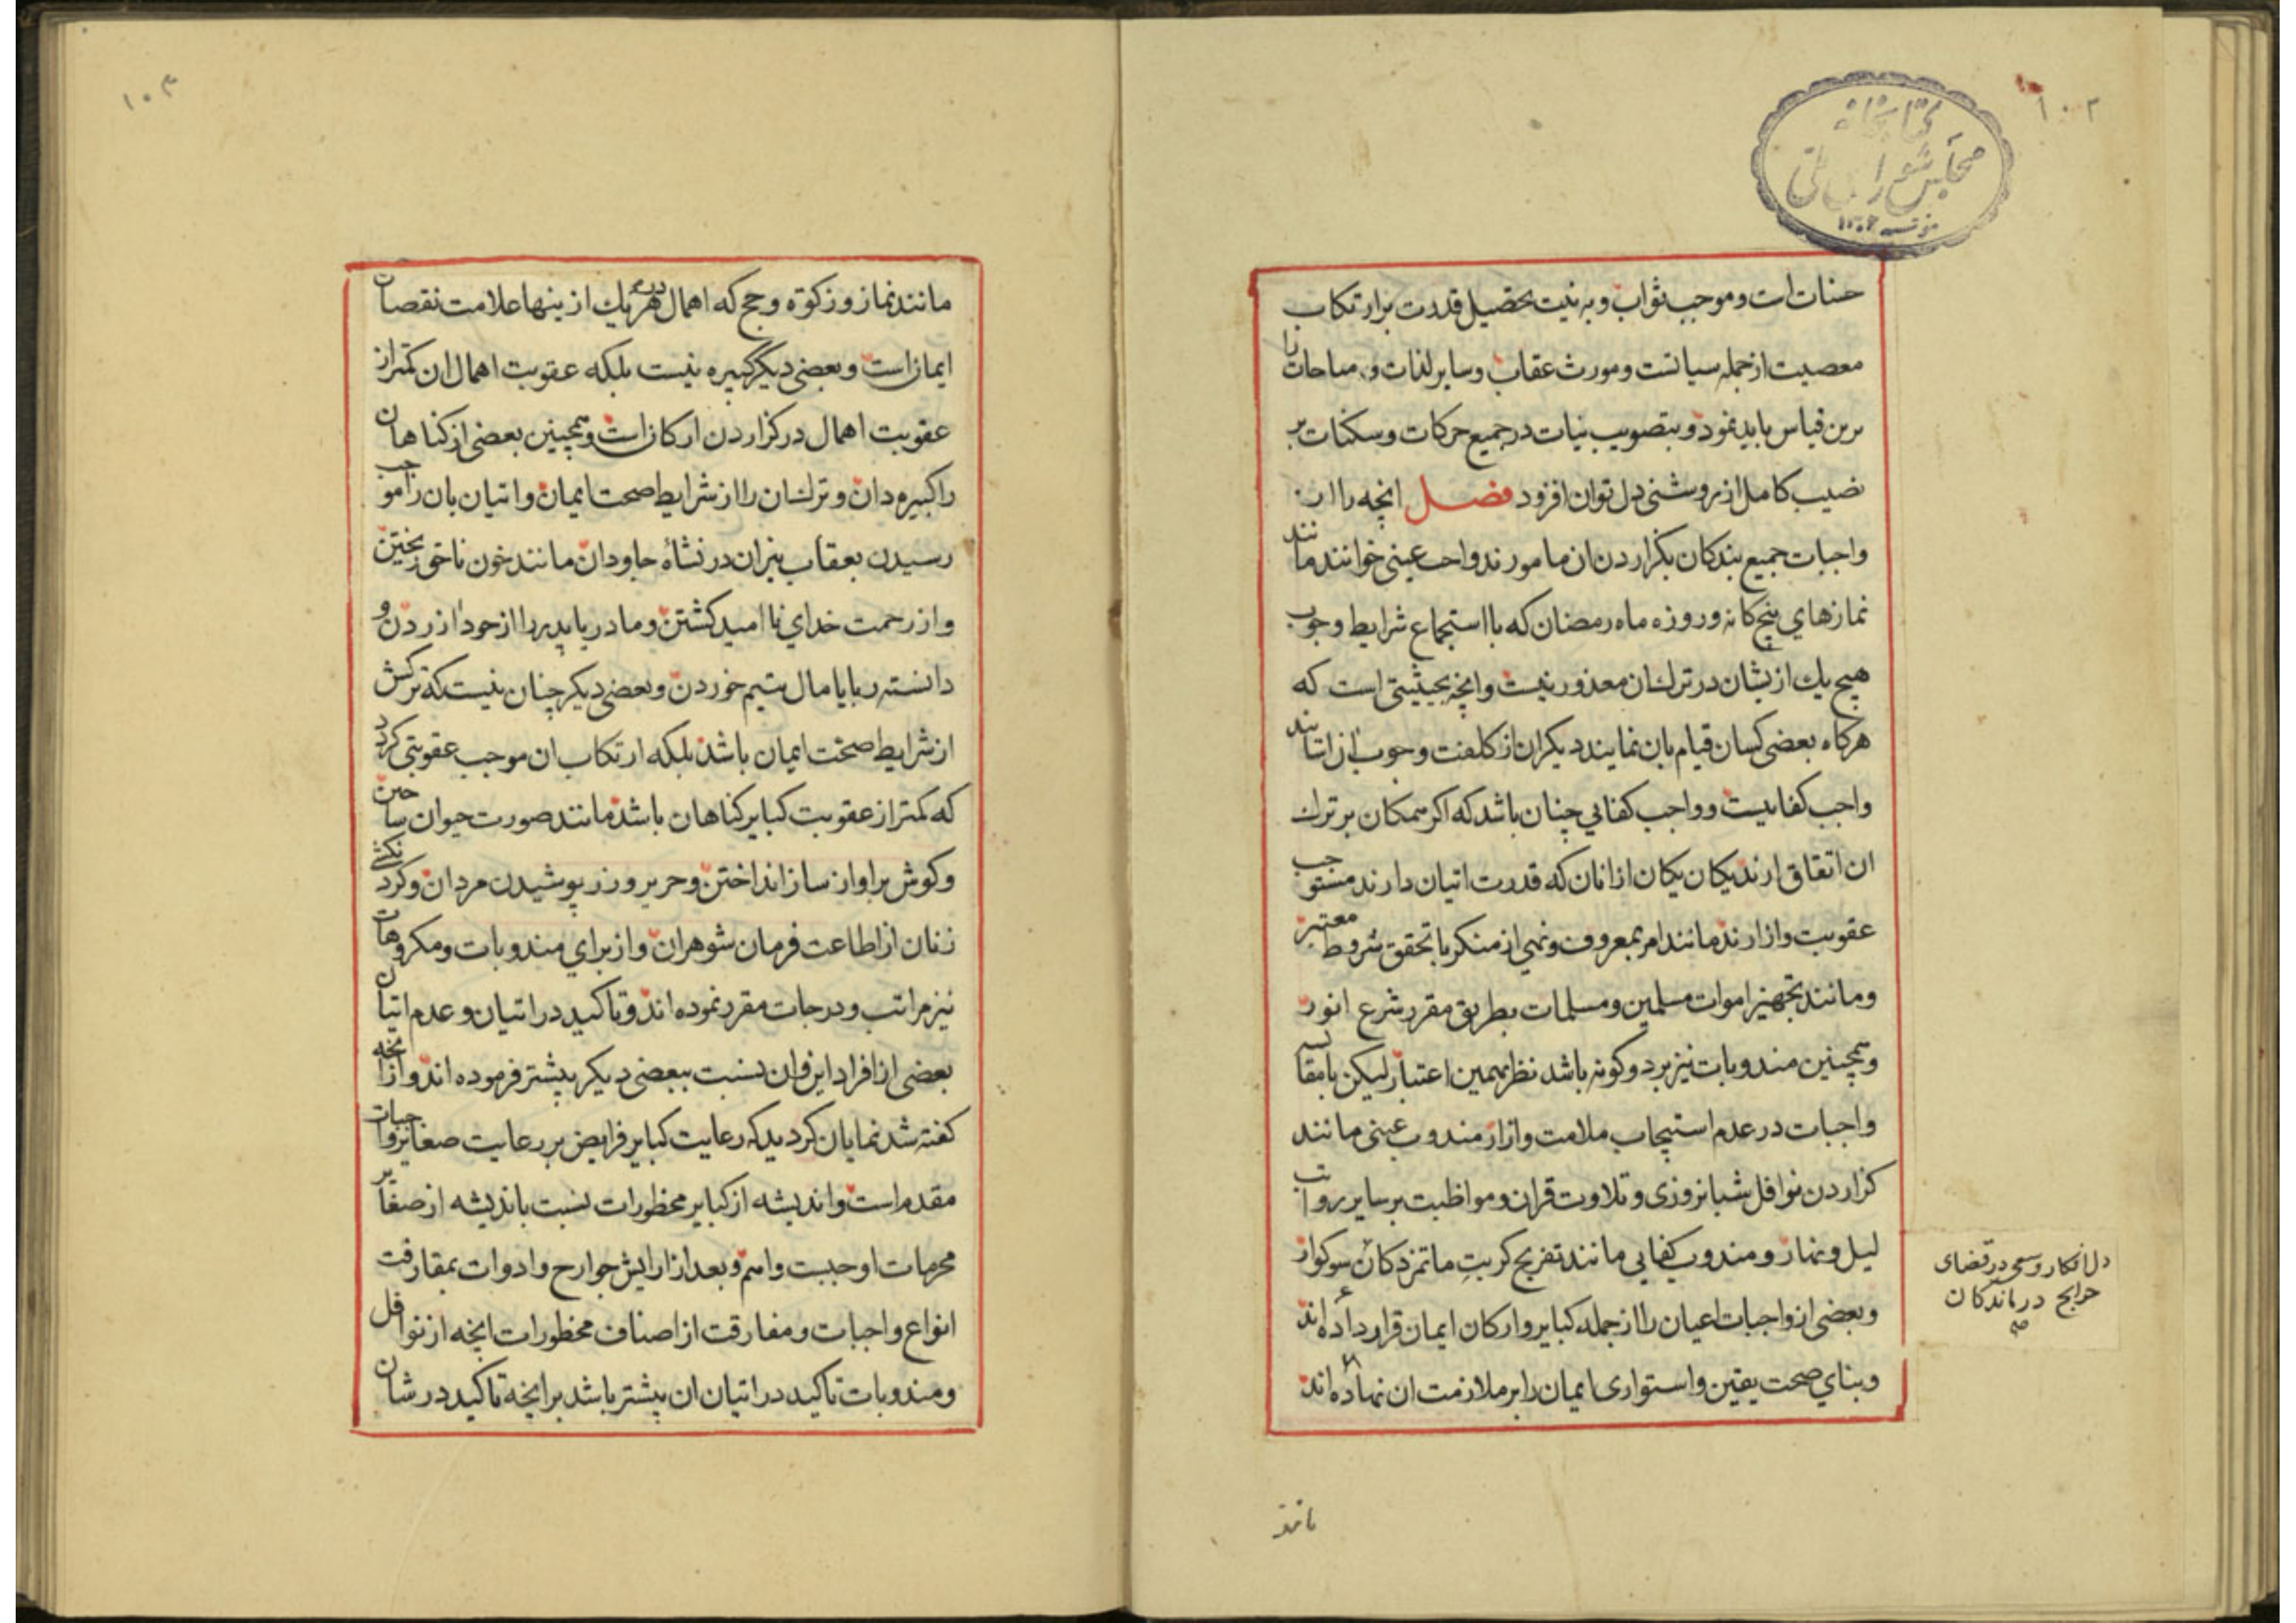 ۱۰۲
کتابخانه
مجلس شورای ملی
حسنات است و موجب ثواب و به نیت تحصیل قدرت بر ارتکاب
معصیت از جمله سیاتست و مورث عقاب و سایر لذات و مباحات را
برین قیاس باید نمود و بتصویب نیات در جمیع حرکات و سکنات بر
نصیب کامل از روشنی دل توان افزود فصل انچه را از
واجبات جمیع بندکان بکزاردن ان مامورند واجب عینی خوانند مانند
نمازهای پنج کانه و روزه ماه رمضان که با استجماع شرایط وجوب
هیچ یك ازیشان در ترك ان معذور نیست و انچه بحیثیتی است که
هرکاه بعضی کسان قیام بان نمایند دیکران از کلفت وجوب ان
واجب کفاییست و واجب کفایی چنان باشد که اکر همکان بر ترك
ان اتفاق ارند یکان یکان از انان که قدرت اتیان دارند مستوجب
عقوبت و ازارند مانند امر بمعروف و نهی از منکر با تحقق شروط معتبر
و مانند تجهیز اموات مسلمین و مسلمات بطریق مقرر شرع انور
و همچنین مندوبات نیز بر دو کونه باشد نظر بهمین اعتبار لیکن
واجبات در عدم استیجاب ملامت و ازار مندوب عینی مانند
کزاردن نوافل شبانروزی و تلاوت قران و مواظبت بر سایر رواتب
لیل و نهار و مندوب کفایی مانند تفریح کربت ماتمزدکان سوکوار
و بعضی از واجبات اعیان را از جمله کبایر و ارکان ایمان قرار داده اند
و بنای صحت یقین و استواری ایمان را بر ملازمت ان نهاده اند
دل افکار و سعی در قضای
حوایج درماندکان
صح
مانند
۱۰۳
مانند نماز و زکوة و حج که اهمال در هر یك ازینها علامت نقصان
ایمان است و بعضی دیکر کبیره نیست بلکه عقوبت اهمال ان کمتر از
عقوبت اهمال در کزاردن ارکان است و همچنین بعضی از کناهان
را کبیره دان و ترك ان را از شرایط صحت ایمان و اتیان بان را موجب
رسیدن بعقاب نیران در نشاه جاودان مانند خون ناحق ریختن
و از رحمت خدای نا امید کشتن و مادر یا پدر را از خود ازردن و
دانسته ربا یا مال یتیم خوردن و بعضی دیکر چنان نیست که ترکش
از شرایط صحت ایمان باشد بلکه ارتکاب ان موجب عقوبتی کردد
که کمتر از عقوبت کبایر کناهان باشد مانند صورت حیوان ساختن
و کوش بر اواز ساز انداختن و حریر و زر پوشیدن مردان و کردنکشی
زنان از اطاعت فرمان شوهران و از برای مندوبات و مکروهات
نیز مراتب و درجات مقرر نموده اند و تاکید در اتیان و عدم اتیان
بعضی از افراد این و ان نسبت ببعضی دیکر بیشتر فرموده اند و ازانچه
کفته شد نمایان کردید که رعایت کبایر فرایض بر رعایت صغایر واجبات
مقدم است و اندیشه از کبایر محظورات نسبت باندیشه از صغایر
محرمات اوجبست و اهم و بعد از ارایش جوارح و ادوات بمقارفت
انواع واجبات و مفارقت از اصناف محظورات انچه از نوافل
و مندوبات تاکید در اتیان ان بیشتر باشد بر انچه تاکید در شان